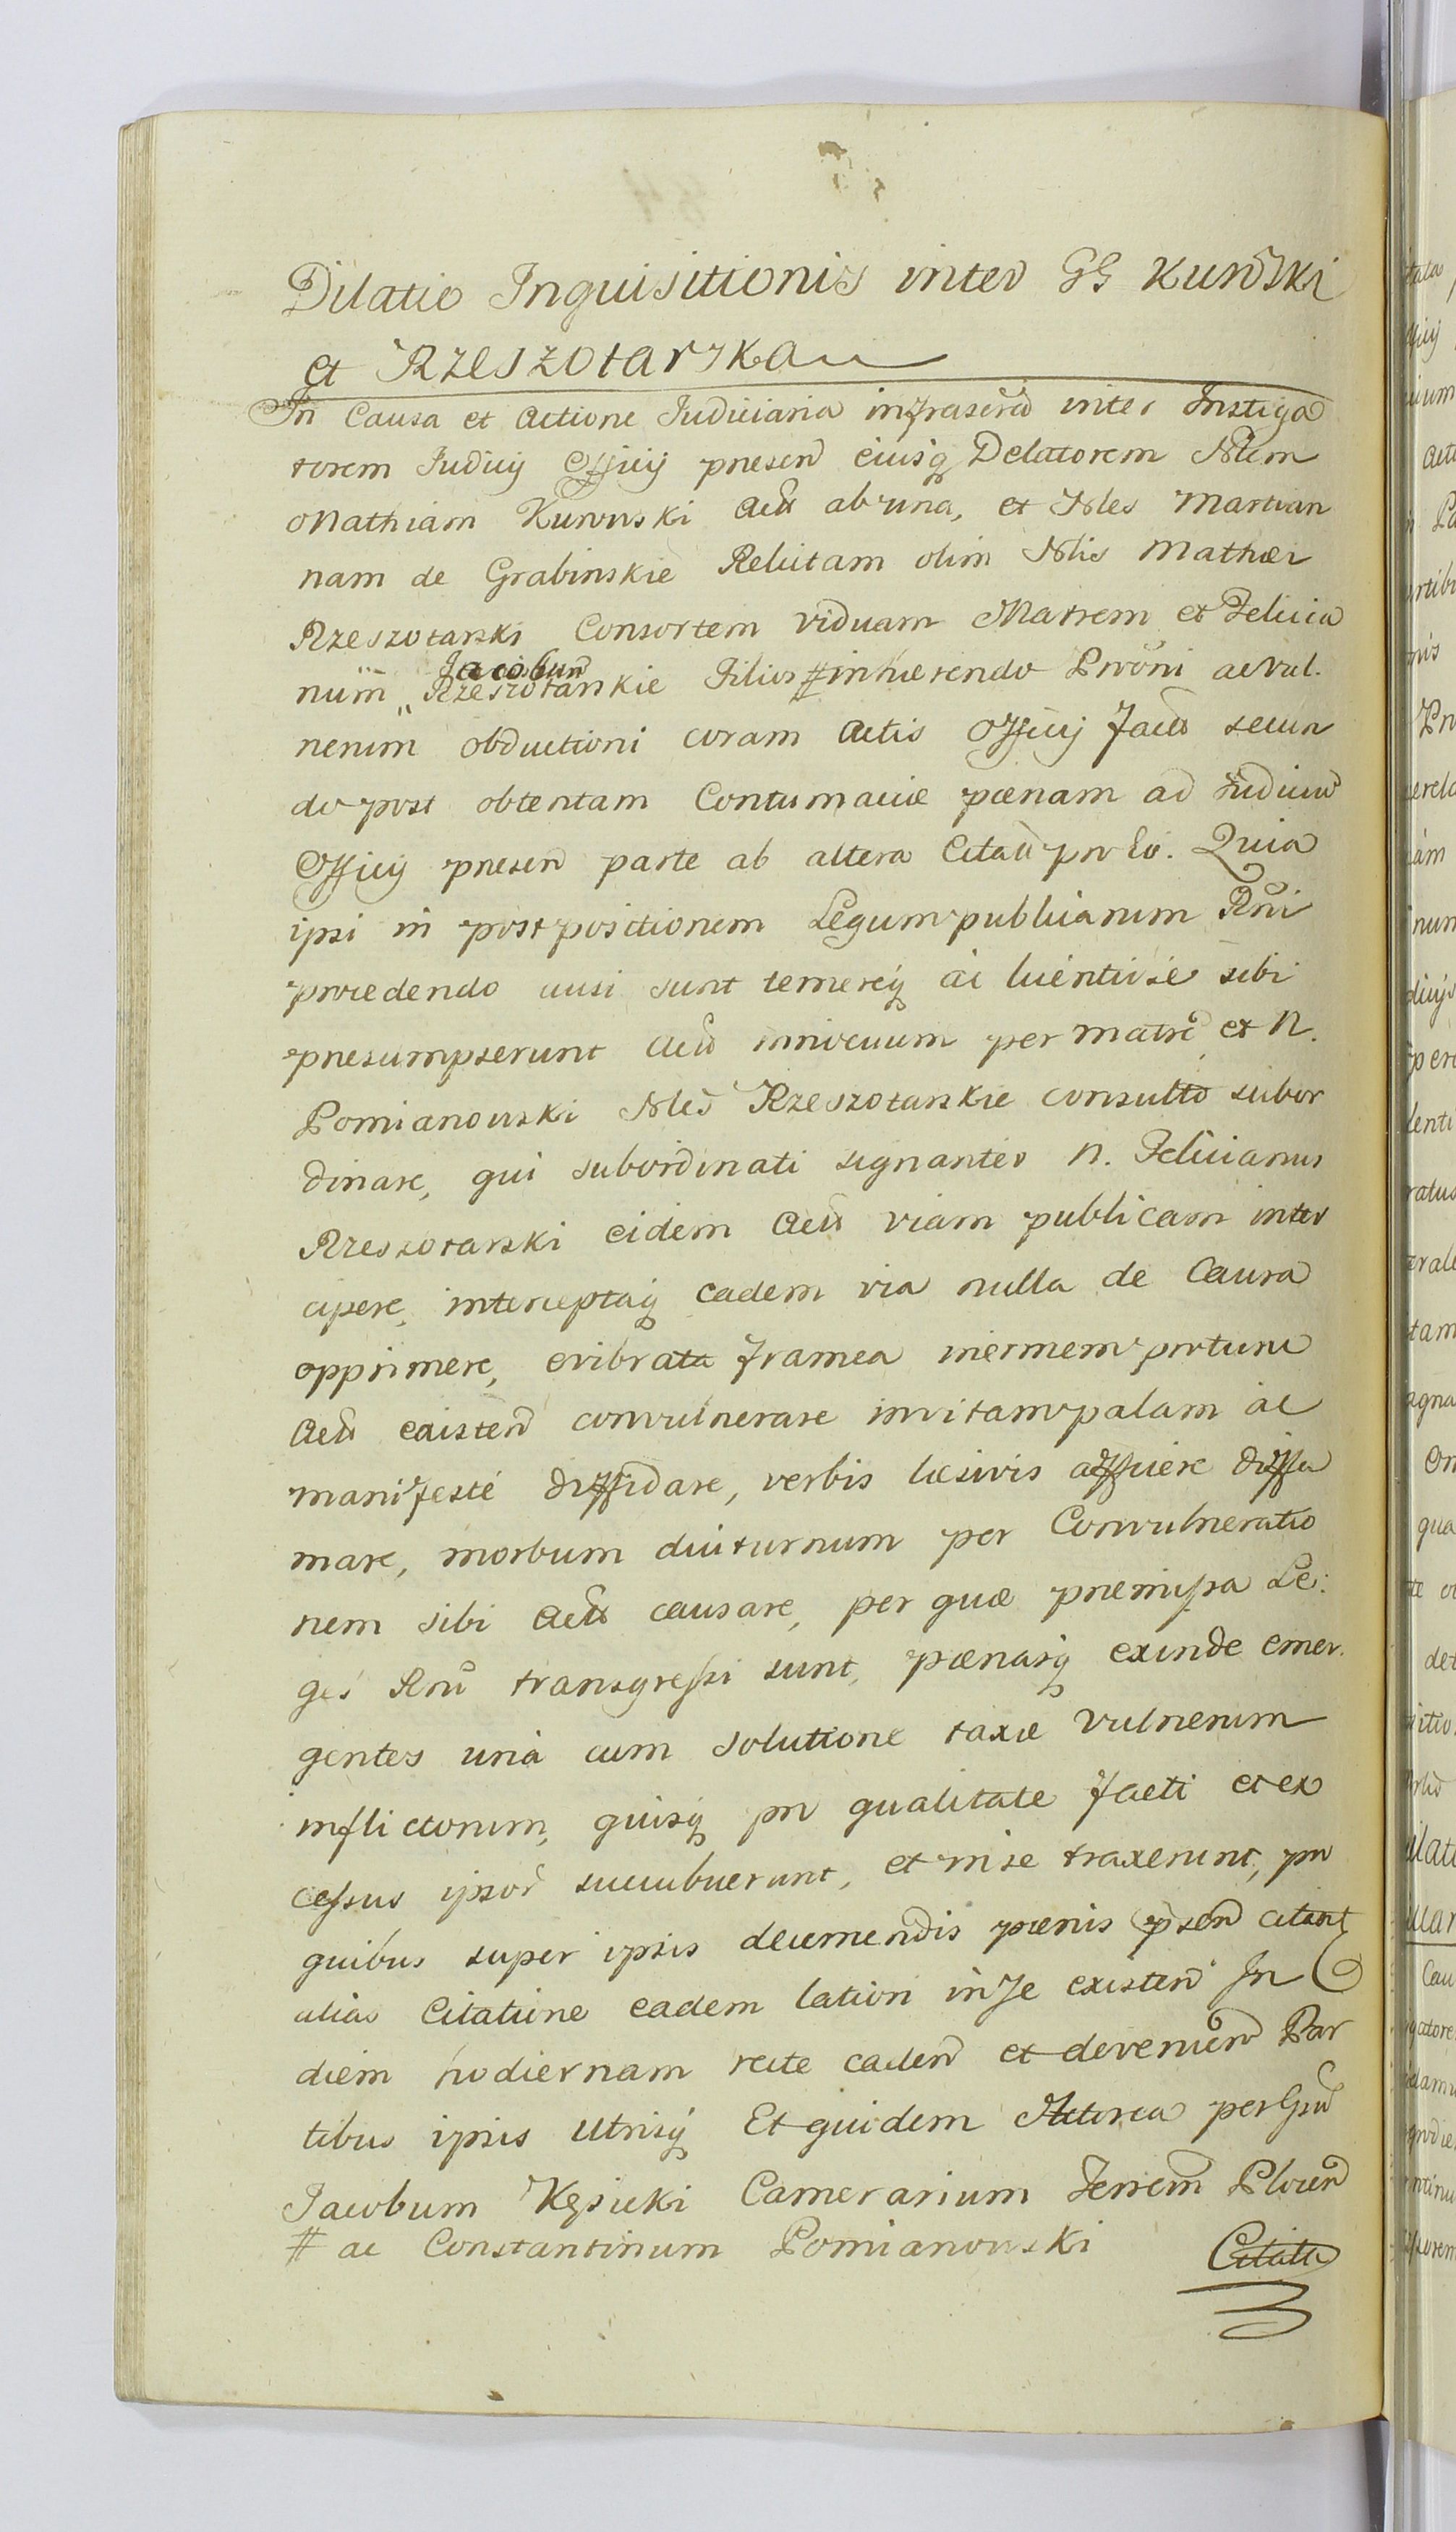 Dilatio Inquisitionis inter GG Kurowski
et Rzeszotarska
In Causa et Actione Judiciaria infrascrta inter Instiga
torem Judicij Officij presen eiusq Delatorem Nlem
Mathiam Kurowski Act ab una, et Nles Martian
nam de Grabinskie Relictam olim Nlis Mathæi
Rzeszotarski Consortem viduam Matrem et Felicia
num „ Jacobum Rzeszotarskie Filios # inhærendo Prononi ac Vul.
nerum obductioni coram Actis Officij fact secun
do post obtentam Contumaciæ pœnam ad Judicium
Officij presen parte ab altera Citatt pro Eo. Quia
ipsi in post positionem Legum publicarum Rni
procedendo ausi sunt temereq ac licentiose sibi
presumpserunt Act innocuum per matre et N.
Pomianowski Nles Rzeszotarskie consulto subor
dinare, qui subordinati signanter N. Felicianus
Rzeszotarski eidem Act viam publicam inter
cipere, interceptaq eadem via nulla de Causa
opprimere, evibrata framea inermem protunc
Act existen convulnerare invitam palam ac
manifesté diffidare, verbis læsivis afficere diffa
mare, morbum diuturnum per Convulneratio
nem sibi Act causare, per quæ premissa Le:
ges Rni transgressi sunt, pœnasq exinde emer.
gentes unà cum solutione taxæ vulnerum
inflictorum, quisq pro qualitate facti et ex
cessus ipsor succubuerunt, et in se traxerunt, pro
quibus super ipsis decernendis pœnis psen citant
alias Citatione eadem latiori in se existen In
diem hodiernam recte caden et devenien Par
tibus ipsis Utrisq Et quidem Actorea per Gsu
Jacobum Kęsicki Camerarium Terrem Plocen
# ac Constantinum Pomianowski
Citata